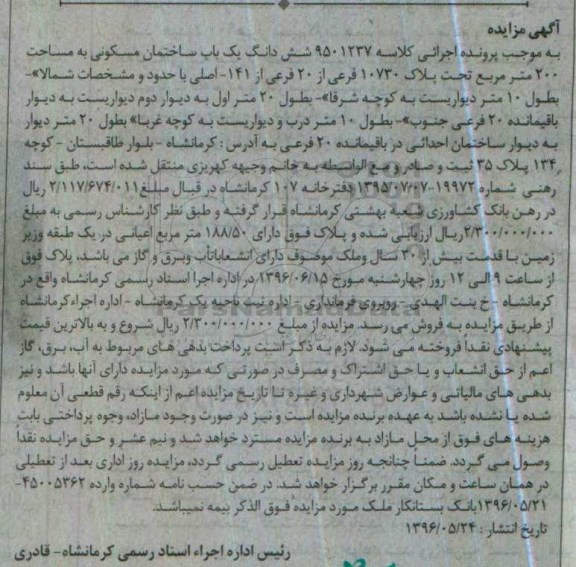 آگهی مزایده
به موجب پرونده اجرائی کلاسه ۹۵۰۱۲۳۷ شش دانگ یک باب ساختمان مسکونی به مساحت
۲۰۰ متر مربع تحت پلاک ۱۰۷۳۰ فرعی از ۲۰ فرعی از ۱۴۱- اصلی با حدود و مشخصات شمالا»-
بطول ۱۰ متر دیواریست به کوچه شرقا»- بطول ۲۰ متر اول به دیوار دوم دیواریست به دیوار
باقیمانده ۲۰ فرعی جنوب»- بطول ۱۰ متر درب و دیواریست به کوچه غربا» بطول ۲۰ متر دیوار
به دیوار ساختمان احداثی در باقیمانده ۲۰ فرعی به آدرس : کرمانشاه - بلوار طاقبستان - کوچه
۱۳۴ پلاک ۳۵ ثبت و صادر و مع الواسطه به خانم وجیهه کهریزی منتقل شده است، طبق سند
رهنی شماره ۱۹۹۷۲-۱۳۹۵/۰۷/۰۷ دفترخانه ۱۰۷ کرمانشاه در قبال مبلغ ۲/۱۱۷/۶۷۴/۰۱۱ ریال
در رهن بانک کشاورزی شعبه بهشتی کرمانشاه قرار گرفته و طبق نظر کارشناس رسمی به مبلغ
۲/۳۰۰/۰۰۰/۰۰۰ریال ارزیابی شده و پلاک فوق دارای ۱۸۸/۵۰ متر مربع اعیانی در یک طبقه وزیر
زمین با قدمت بیش از ۳۰ سال وملک موصوف دارای انشعاباتآب وبرق و گاز می باشد، پلاک فوق
از ساعت ۹ الی ۱۲ روز چهارشنبه مورخ ۱۳۹۶/۰۶/۱۵ در اداره اجرا اسناد رسمی کرمانشاه واقع در
کرمانشاه - خ بنت الهدی - روبروی فرمانداری - اداره ثبت ناحیه یک کرمانشاه - اداره اجراء کرمانشاه
از طریق مزایده به فروش می رسد. مزایده از مبلغ ۲/۳۰۰/۰۰۰/۰۰۰ ریال شروع و به بالاترین قیمت
پیشنهادی نقداً فروخته می شود. لازم به ذکر است پرداخت بدهی های مربوط به آب، برق، گاز
اعم از حق انشعاب و یا حق اشتراک و مصرف در صورتی که مورد مزایده دارای آنها باشد و نیز
بدهی های مالیاتی و عوارض شهرداری و غیره تا تاریخ مزایده اعم از اینکه رقم قطعی آن معلوم
شده یا نشده باشد به عهده برنده مزایده است و نیز در صورت وجود مازاد، وجوه پرداختی بابت
هزینه های فوق از محل مازاد به برنده مزایده مسترد خواهد شد و نیم عشر و حق مزایده نقداً
وصول می گردد. ضمناً چنانچه روز مزایده تعطیل رسمی گردد، مزایده روز اداری بعد از تعطیلی
در همان ساعت و مکان مقرر برگزار خواهد شد. در ضمن حسب نامه شماره وارده ۴۵۰۰۵۳۶۲-
۱۳۹۶/۰۵/۲۱بانک بستانکار ملک مورد مزایده فوق الذکر بیمه نمیباشد.
تاریخ انتشار : ۱۳۹۶/۰۵/۲۴
رئیس اداره اجراء اسناد رسمی کرمانشاه- قادری